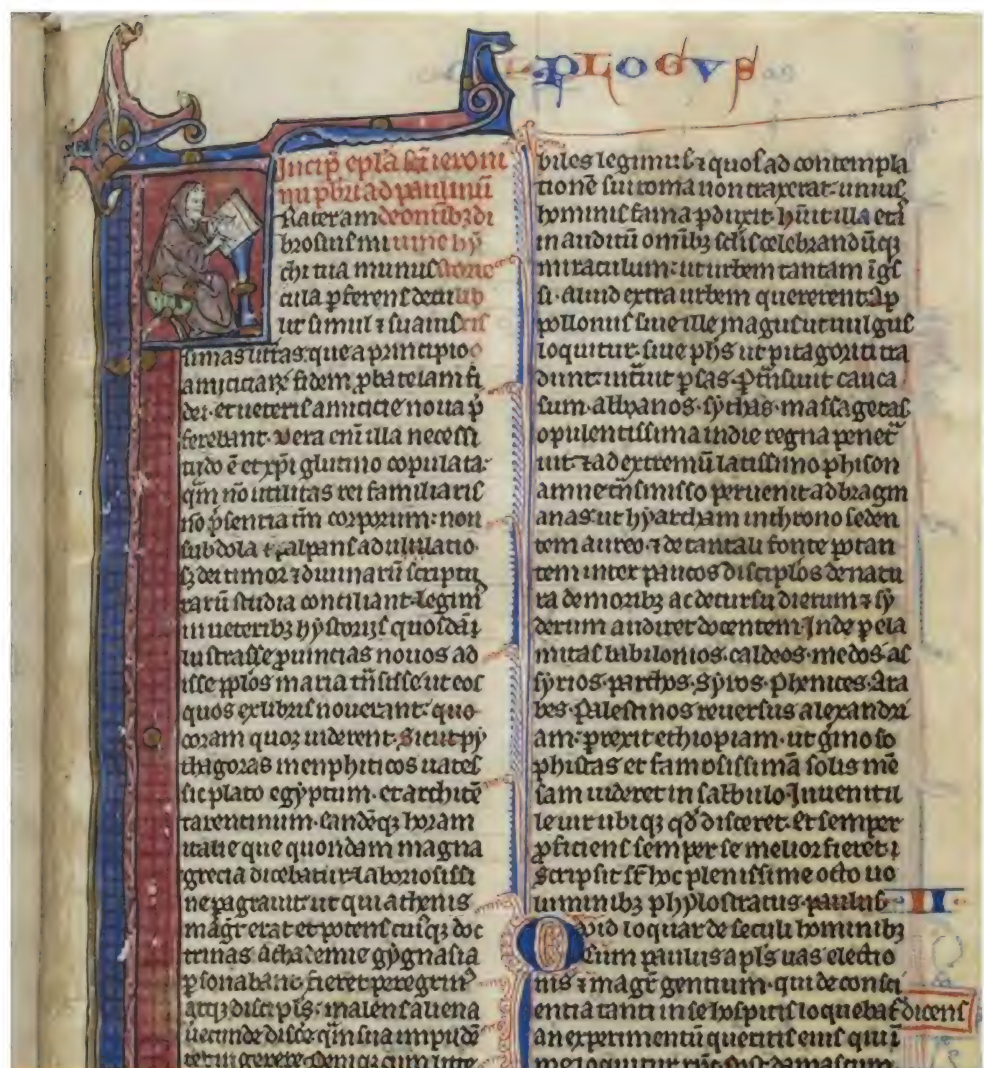 PLOGVS
Incip̄ epl̄a sc̄i ieroni
mi p̄bri ad paulinū
Rater am de omībꝫ di
brosius mi uine hy
chi tua munus storie
cula ꝑferens detu lib
lit simul ⁊ suauis ris
simas litt̄as. que a principio
amiciciarꝫ fidem. ꝓbate iam fi
dei. et ueteris amicicie noua p̄
ferebant. Vera enī illa necessi
tudo ē et xp̄i glutino copulata.
qm̄ nō utilitas rei familiaris
nō p̄sentia tm̄ corporum. non
subdola ⁊ palpans adulatio
sꝫ dei timor ⁊ diuinarū scriptu
rarū studia conciliant. Legim̄
in ueteribꝫ hystoriis quosdā
lustrasse ꝓuincias nouos ad
isse pp̄los maria tn̄sisse ut eos
quos ex libris nouerant. quo
coram quoꝫ uiderent. Sicut py
thagoras menphiticos uates
sic plato egyptum. et architē
tarentinum. eandēqꝫ horam
italie que quondam magna
grecia dicebatur. laboriosissi
ne pagrauit ut qui athenis
magr̄ erat et potens cuiqꝫ doc
trinas achademie gygnasia
ꝑsonabant. fieret peregrin⁹
atqꝫ discipl̄s. malens aliena
uerecunde discē qm̄ sua impudē
ter ingerere. Deniqꝫ cum litte
biles legimus ⁊ quos ad contempla
tionē sui roma non traxerat. unius
hominis fama ꝑduxit. hūit illa etā
inauditū omībꝫ sc̄lis celebrandūqꝫ
miraculum. ut urbem tantam īgs̄
si. aliud extra urbem quererent. Ap
pollonius siue ille magus ut uulgus
loquitur. siue phs̄ ut pitagorici tra
dunt. int̄uit ꝑsas. P̄tn̄siuit cauca
sum. albanos. sythas. massagetas
opulentissima indie regna penet̄
uit. ⁊ ad extremū latissimo phison
amne tn̄smisso peruenit ad bragm
anas. ut hyarcham in throno seden
tem aureo. ⁊ de tantali fonte potan
tem inter paucos discipl̄os de natu
ra de moribꝫ ac de cursu dierum ⁊ sy
derum audiret docentem. Inde ꝑ ela
mitas babilonios. caldeos. medos. as
syrios. parthos. Syros. Phenices. Ara
bes. Palestinos reuersus alexandri
am. ꝑrexit ethiopiam. ut gimoso
phistas et famosissimā solis mē
sam uideret in sabulo. Inuenit il
le uir ubiqꝫ qd̄ disceret. Et semper
ꝓficiens semper se melior fieret.
Scripsit sr̄ hoc plenissime octo uo
luminibꝫ phylostratus. paulus II
Quid loquar de seculi hominibꝫ
Cum paulus apl̄s uas electio
nis ⁊ magr̄ gentium. qui de consci
entia tanti in se hospitis loquebat̄ dicens
an experimentū queritis eius qui ī
me loquitur xp̄c. post damascum